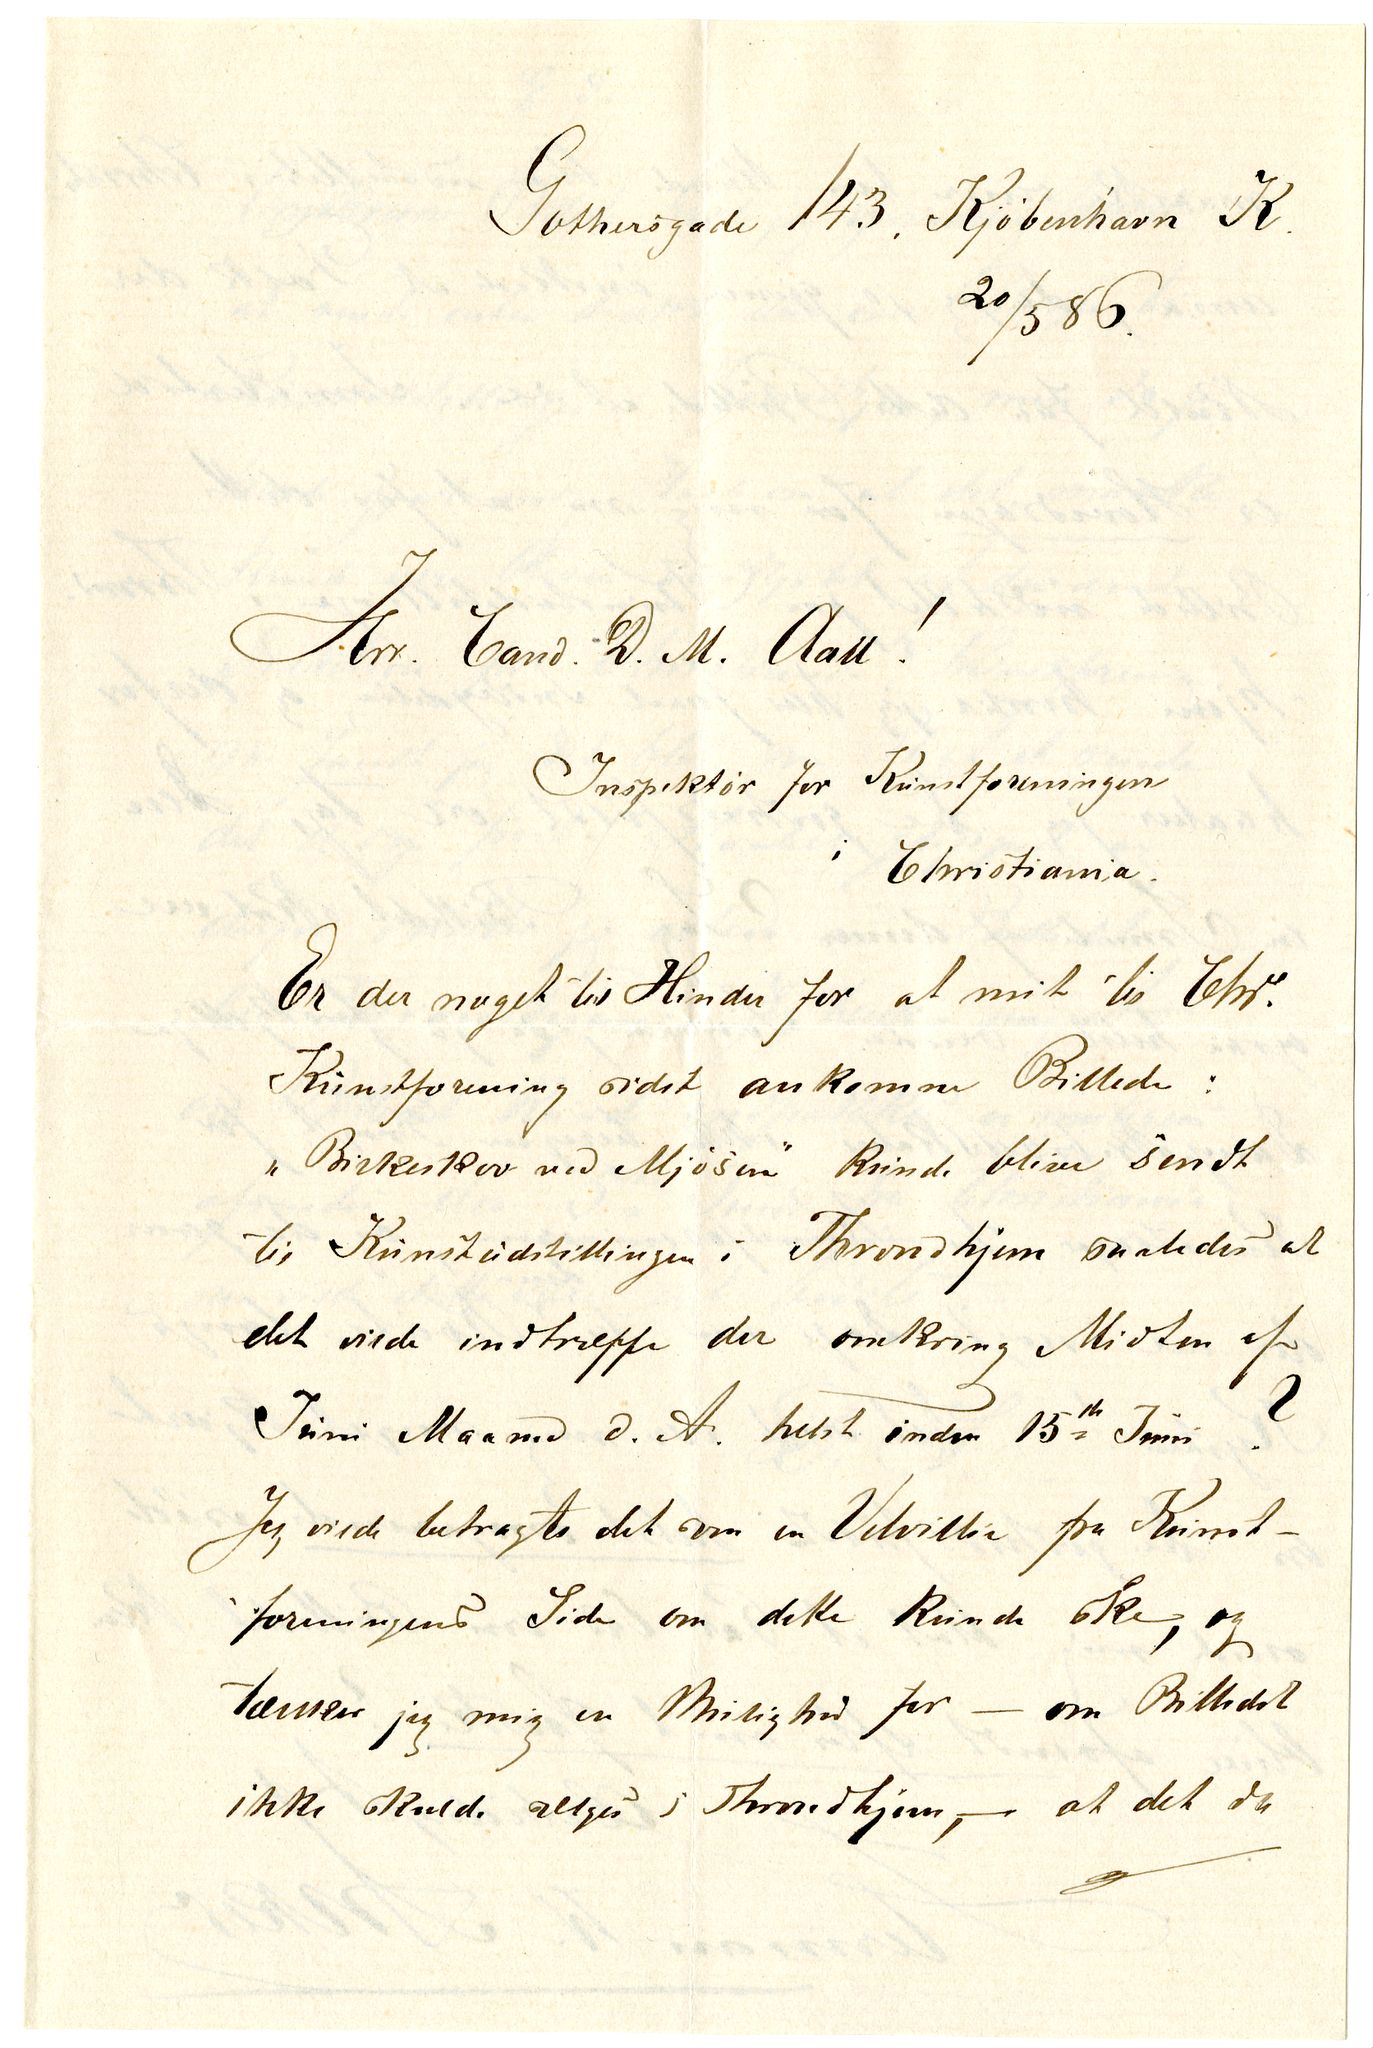 Gothersgade 143, Kjöbenhavn K.
20/5 86.
Hrr. Cand. D. M. Aall!
Inspektör for Kunstforeningen
i Christiania.
Er der noget til Hinder for at mit til Chr.
Kunstforening sidst ankomne Billede:
"Birkeskov ved Mjösen" kunde blive sendt
til Kunstudstillingen i Throndhjem saaledes at
det vilde indtræffe der omkring Midten af
Juni Maaned d. A. helst inden 15de Juni?
Jeg vilde betragte det som en Velvillie fra Kunst-
foreningens Side om dette kunde ske, og
tænker jeg mig en Mulighed for — om Billedet
ikke skulde sælges i Throndhjem, — at det da